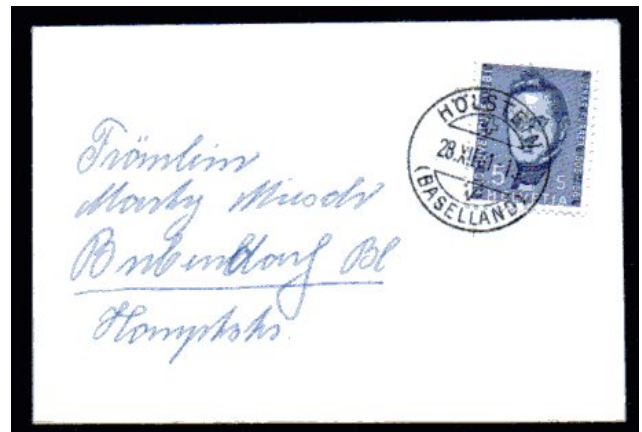 HÖLSTEIN
28.XII.61
(BASELLAND)
5 5
HELVETIA
Fräulein
Marty Miesch
Bubendorf Bl
Hauptstr.